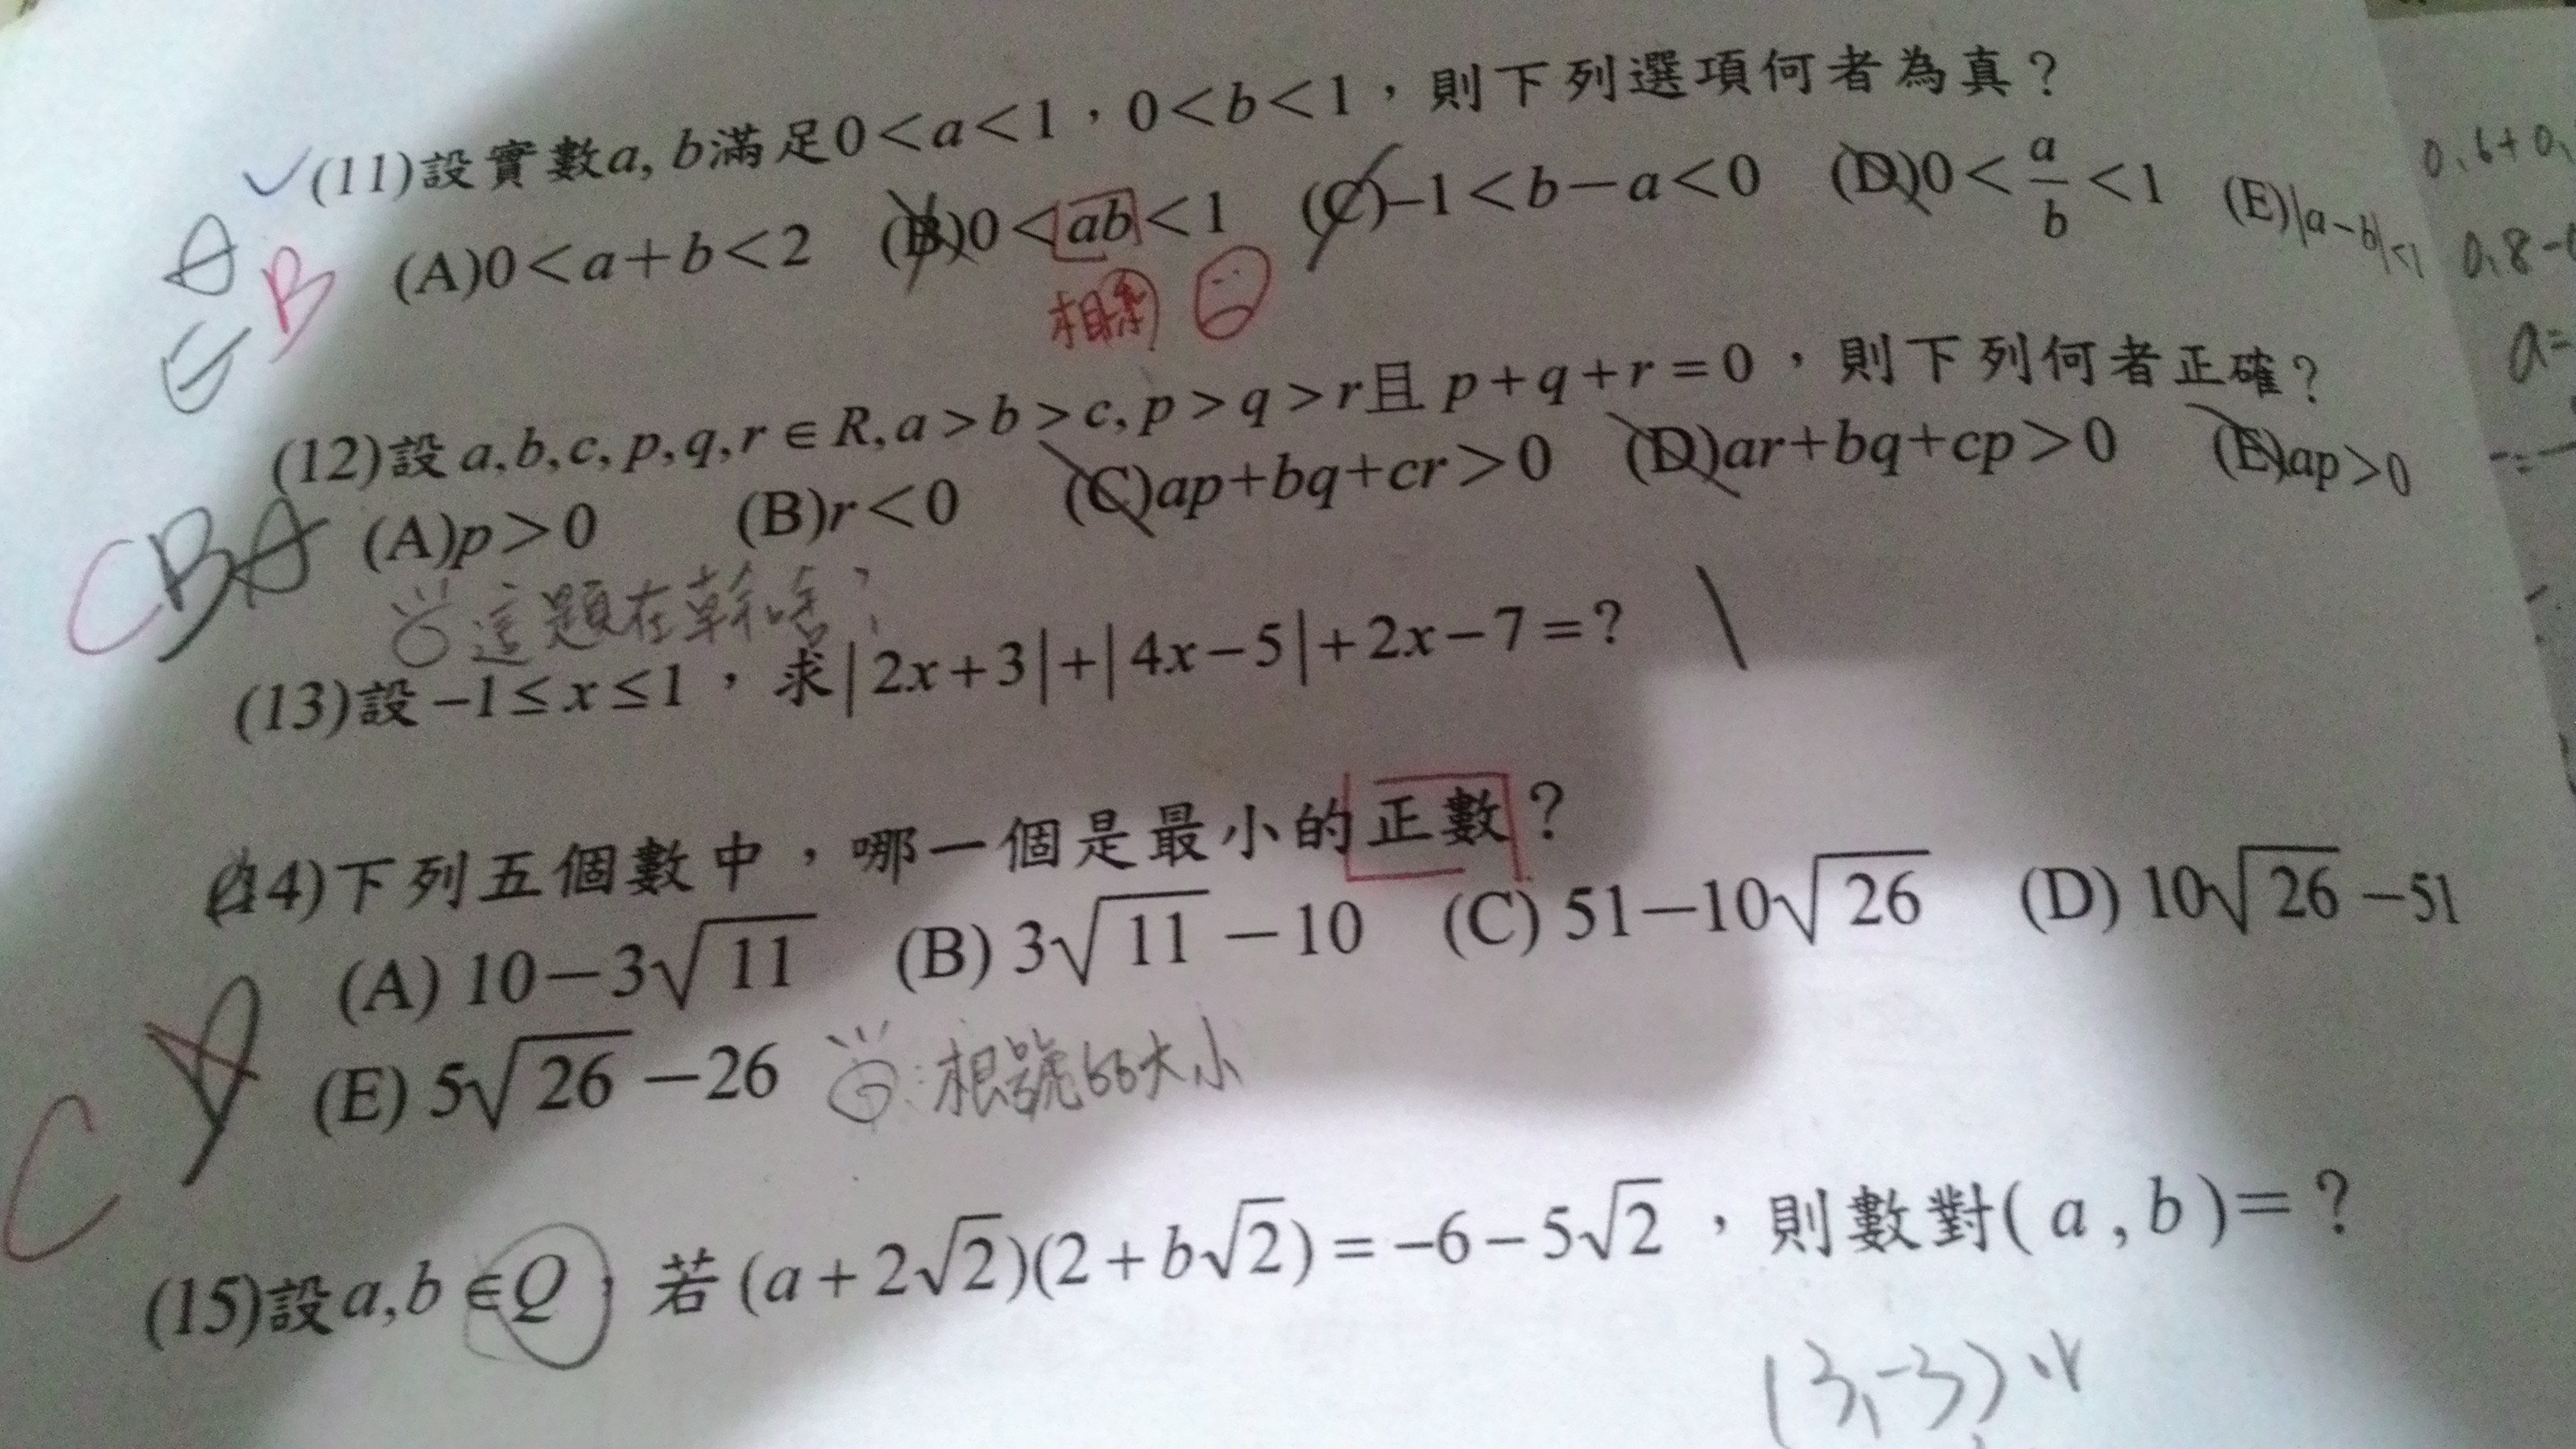 (11)設實數a, b滿足0<a<1，0<b<1，則下列選項何者為真？
(A)0<a+b<2 (B)0<ab<1 (C)-1<b-a<0 (D)0<a/b<1 (E)|a-b|<1
A
B
E
相乘
(12)設a,b,c,p,q,r∈R,a>b>c,p>q>r且p+q+r=0，則下列何者正確？
(A)p>0 (B)r<0 (C)ap+bq+cr>0 (D)ar+bq+cp>0 (E)ap>0
CBA
這題在幹啥？
(13)設-1≤x≤1，求|2x+3|+|4x-5|+2x-7=?
(14)下列五個數中，哪一個是最小的正數？
(A) 10-3√11 (B) 3√11-10 (C) 51-10√26 (D) 10√26-51
(E) 5√26-26
根號的大小
C
(15)設a,b∈Q，若(a+2√2)(2+b√2)=-6-5√2，則數對(a,b)=?
(3,-3)
0.6+0.
0.8-
a=